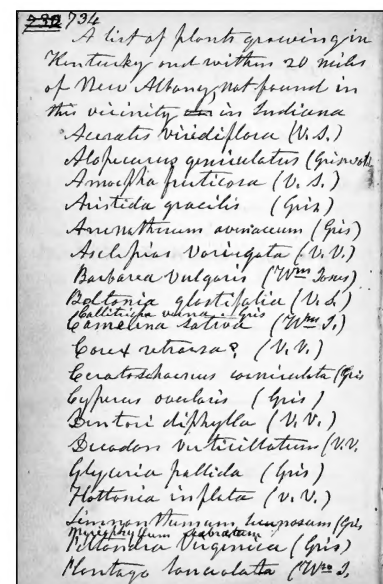 730 734
A list of plants growing in
Kentucky and within 20 miles
of New Albany, not found in
this vicinity in Indiana
Acerates viridiflora (V.S.)
Alopecurus geniculatus (Griswold
Amorpha fruticosa (V.S.)
Aristida gracilis (Gris)
Arrenatherum avenaceum (Gris)
Asclepias variegata (V.V.)
Barbarea vulgaris (Wm Jones)
Boltonia glastifolia (V.S.)
Callitriche verna. Gris
Camelina sativa (Wm J.)
Carex retrorsa? (V.V.)
Ceratoschoenus corniculata (Gris
Cyperus ovularis (Gris)
Dentaria diphylla (V.V.)
Decodon verticillatum (V.V.
Glyceria pallida (Gris)
Hottonia inflata (V.V.)
Limnanthemum lacunosum (Gris
Myriophyllum scabratum
Peltandra Virginica (Gris)
Plantago lanceolata (Wm J.